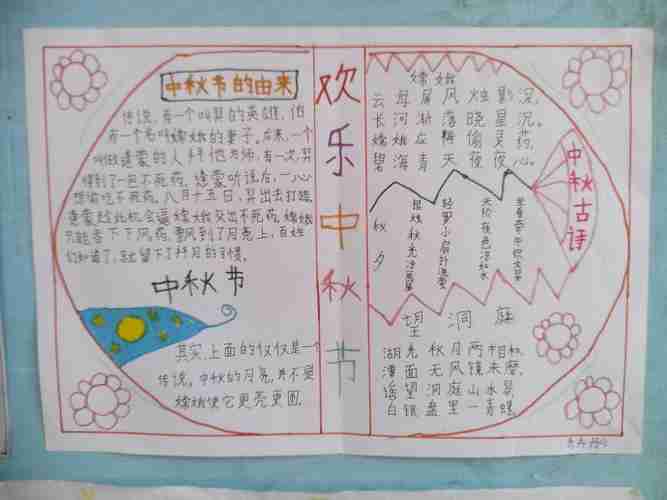 中秋节的由来
传说,有一个叫羿的英雄,他
有一个名叫嫦娥的妻子。后来,一个
叫做逢蒙的人拜他为师,有一次,羿
得到了一包不死药。逢蒙听说后,一心
想偷吃不死药。八月十五日,羿出去打猎,
逢蒙趁此机会逼嫦娥交出不死药,嫦娥
只能吞下不死药,飘到了月亮上,百姓
们知道了,就留下了拜月的习惯。
中秋节
其实,上面的仅仅是一个
传说,中秋的月亮,并不是
嫦娥使它更亮更圆。
欢乐中秋节
嫦娥
云母屏风烛影深,
长河渐落晓星沉。
嫦娥应悔偷灵药,
碧海青天夜夜心。
中秋古诗
秋夕
银烛秋光冷画屏
轻罗小扇扑流萤
天阶夜色凉如水
坐看牵牛织女星
望洞庭
湖光秋月两相和,
潭面无风镜未磨。
遥望洞庭山水
白银盘里一青螺。